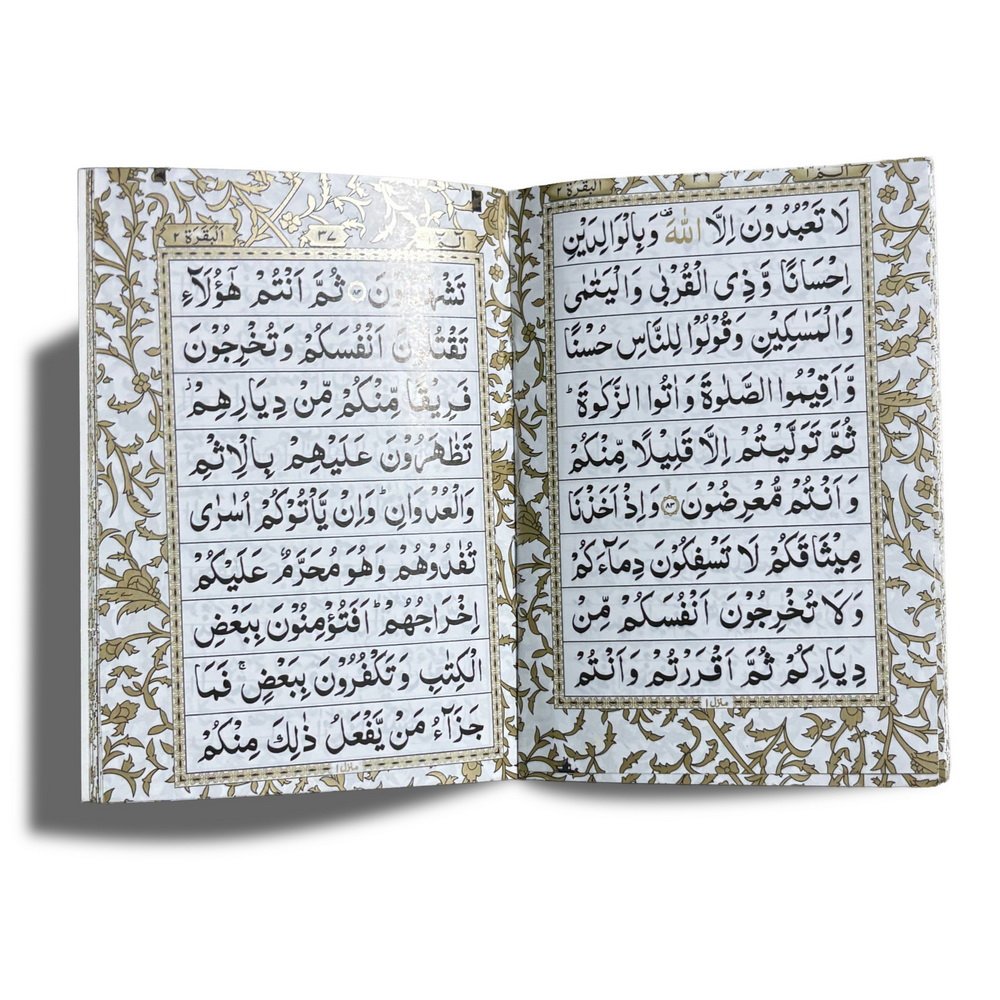 البقرة ٢
لَا تَعْبُدُوْنَ اِلَّا اللّٰهَ ۫ وَبِالْوَالِدَيْنِ
اِحْسَانًا وَّذِی الْقُرْبٰی وَالْيَتٰمٰی
وَالْمَسٰكِيْنِ وَقُوْلُوْا لِلنَّاسِ حُسْنًا
وَّاَقِيْمُوا الصَّلٰوةَ وَاٰتُوا الزَّكٰوةَ ؕ
ثُمَّ تَوَلَّيْتُمْ اِلَّا قَلِيْلًا مِّنْكُمْ
وَاَنْتُمْ مُّعْرِضُوْنَ ۝٨٣ وَاِذْ اَخَذْنَا
مِيْثَاقَكُمْ لَا تَسْفِكُوْنَ دِمَآءَكُمْ
وَلَا تُخْرِجُوْنَ اَنْفُسَكُمْ مِّنْ
دِيَارِكُمْ ثُمَّ اَقْرَرْتُمْ وَاَنْتُمْ
منزل ١
البقرة ٢
٣٧
تَشْهَدُوْنَ ۝ ثُمَّ اَنْتُمْ هٰۤؤُلَآءِ
تَقْتُلُوْنَ اَنْفُسَكُمْ وَتُخْرِجُوْنَ
فَرِيْقًا مِّنْكُمْ مِّنْ دِيَارِهِمْ ۡ
تَظٰهَرُوْنَ عَلَيْهِمْ بِالْاِثْمِ
وَالْعُدْوَانِ ؕ وَاِنْ يَّاْتُوْكُمْ اُسٰرٰی
تُفٰدُوْهُمْ وَهُوَ مُحَرَّمٌ عَلَيْكُمْ
اِخْرَاجُهُمْ ؕ اَفَتُؤْمِنُوْنَ بِبَعْضِ
الْكِتٰبِ وَتَكْفُرُوْنَ بِبَعْضٍ ۚ فَمَا
جَزَآءُ مَنْ يَّفْعَلُ ذٰلِكَ مِنْكُمْ
منزل ١